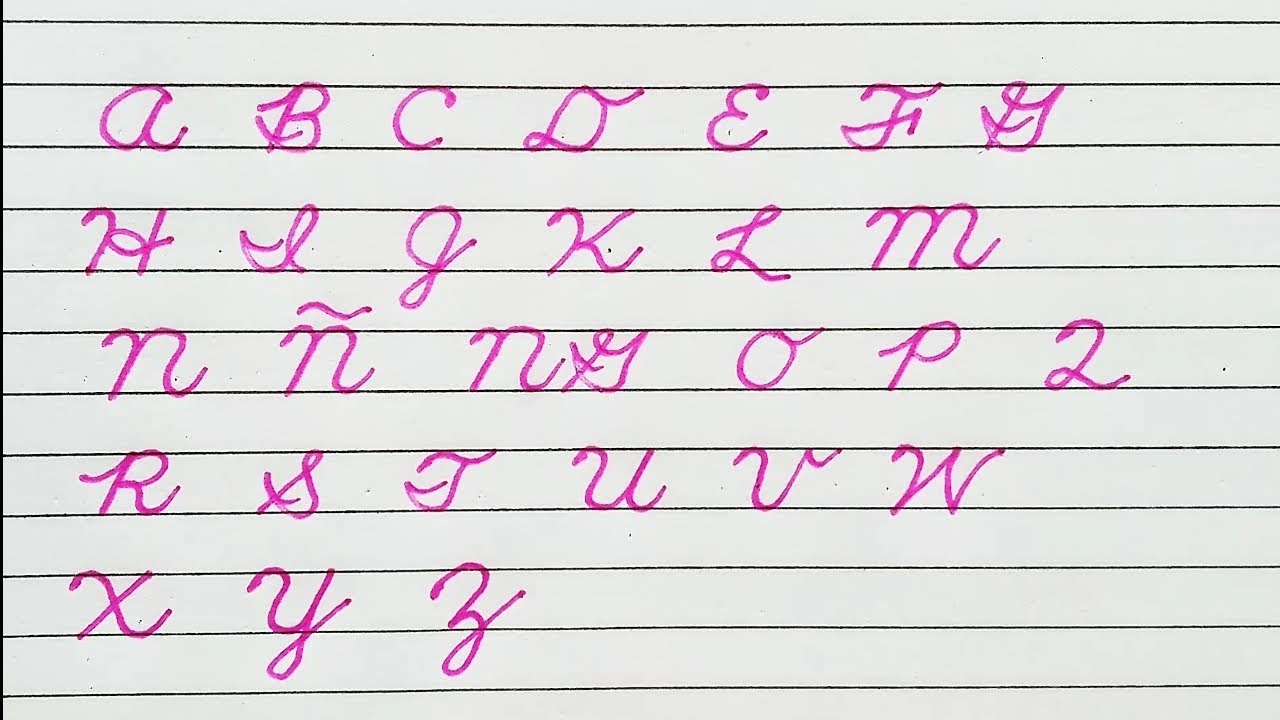 A B C D E F G
H I J K L M
N Ñ NG O P Q
R S T U V W
X Y Z